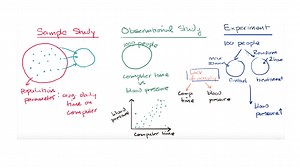 Sample Study
Population
parameter: avg daily
time on
computer
Observational Study
100 people
computer time
vs
blood pressure
comp
time
blood
pressure
blood
pressure
computer time
Experiment
100 people
Random
Control
treatment
blood
pressure